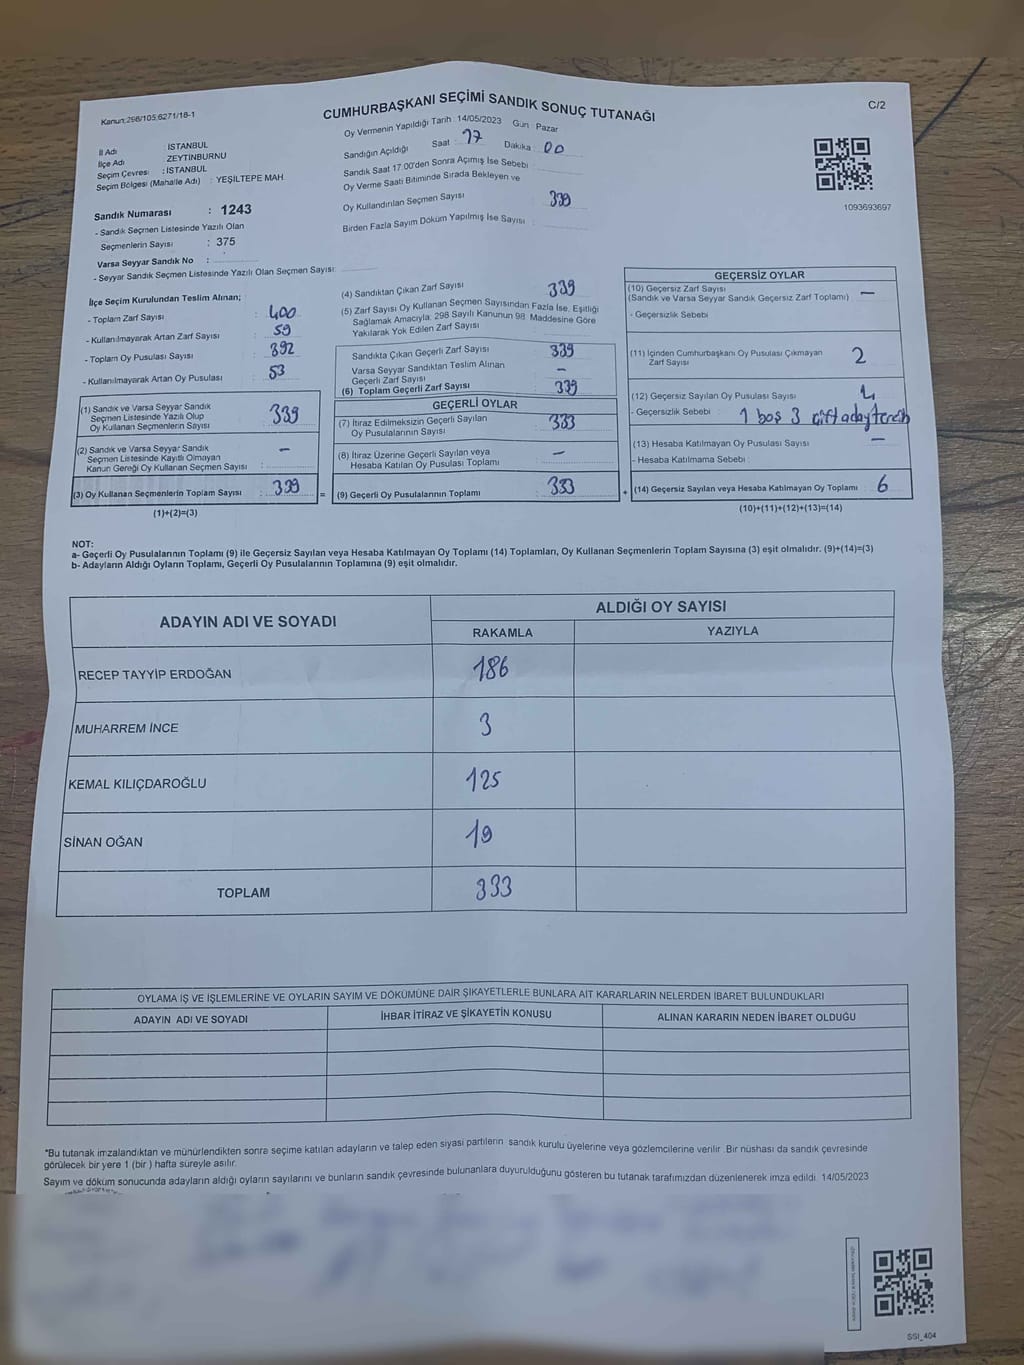 Kanun:298/105,6271/18-1
CUMHURBAŞKANI SEÇİMİ SANDIK SONUÇ TUTANAĞI
C/2
Oy Vermenin Yapıldığı Tarih : 14/05/2023 Gün : Pazar
İl Adı : İSTANBUL
İlçe Adı : ZEYTİNBURNU
Seçim Çevresi : İSTANBUL
Seçim Bölgesi (Mahalle Adı) : YEŞİLTEPE MAH
Sandık Numarası : 1243
- Sandık Seçmen Listesinde Yazılı Olan
Seçmenlerin Sayısı : 375
Varsa Seyyar Sandık No :
- Seyyar Sandık Seçmen Listesinde Yazılı Olan Seçmen Sayısı:
Sandığın Açıldığı Saat : 17 Dakika : 00
Sandık Saat 17:00'den Sonra Açımış İse Sebebi :
Oy Verme Saati Bitiminde Sırada Bekleyen ve
Oy Kullandırılan Seçmen Sayısı 339
Birden Fazla Sayım Döküm Yapılmış İse Sayısı :
1093693697
İlçe Seçim Kurulundan Teslim Alınan;
- Toplam Zarf Sayısı : 400
- Kullanılmayarak Artan Zarf Sayısı : 59
- Toplam Oy Pusulası Sayısı : 392
- Kullanılmayarak Artan Oy Pusulası : 53
(1) Sandık ve Varsa Seyyar Sandık
Seçmen Listesinde Yazılı Olup
Oy Kullanan Seçmenlerin Sayısı : 339
(2) Sandık ve Varsa Seyyar Sandık
Seçmen Listesinde Kayıtlı Olmayan
Kanun Gereği Oy Kullanan Seçmen Sayısı : –
(3) Oy Kullanan Seçmenlerin Toplam Sayısı : 339
(1)+(2)=(3)
(4) Sandıktan Çıkan Zarf Sayısı : 339
(5) Zarf Sayısı Oy Kullanan Seçmen Sayısından Fazla İse, Eşitliği
Sağlamak Amacıyla; 298 Sayılı Kanunun 98. Maddesine Göre
Yakılarak Yok Edilen Zarf Sayısı
Sandıkta Çıkan Geçerli Zarf Sayısı : 339
Varsa Seyyar Sandıktan Teslim Alınan
Geçerli Zarf Sayısı : –
(6) Toplam Geçerli Zarf Sayısı : 339
GEÇERLİ OYLAR
(7) İtiraz Edilmeksizin Geçerli Sayılan
Oy Pusulalarının Sayısı : 333
(8) İtiraz Üzerine Geçerli Sayılan veya
Hesaba Katılan Oy Pusulası Toplamı : –
= (9) Geçerli Oy Pusulalarının Toplamı : 333
GEÇERSİZ OYLAR
(10) Geçersiz Zarf Sayısı
(Sandık ve Varsa Seyyar Sandık Geçersiz Zarf Toplamı) : –
- Geçersizlik Sebebi
(11) İçinden Cumhurbaşkanı Oy Pusulası Çıkmayan
Zarf Sayısı 2
(12) Geçersiz Sayılan Oy Pusulası Sayısı : 4
- Geçersizlik Sebebi : 1 boş 3 çift aday tercih
(13) Hesaba Katılmayan Oy Pusulası Sayısı : –
- Hesaba Katılmama Sebebi :
+ (14) Geçersiz Sayılan veya Hesaba Katılmayan Oy Toplamı : 6
(10)+(11)+(12)+(13)=(14)
NOT:
a- Geçerli Oy Pusulalarının Toplamı (9) ile Geçersiz Sayılan veya Hesaba Katılmayan Oy Toplamı (14) Toplamları, Oy Kullanan Seçmenlerin Toplam Sayısına (3) eşit olmalıdır. (9)+(14)=(3)
b- Adayların Aldığı Oyların Toplamı, Geçerli Oy Pusulalarının Toplamına (9) eşit olmalıdır.
ADAYIN ADI VE SOYADI
ALDIĞI OY SAYISI
RAKAMLA YAZIYLA
RECEP TAYYİP ERDOĞAN 186
MUHARREM İNCE 3
KEMAL KILIÇDAROĞLU 125
SİNAN OĞAN 19
TOPLAM 333
OYLAMA İŞ VE İŞLEMLERİNE VE OYLARIN SAYIM VE DÖKÜMÜNE DAİR ŞİKAYETLERLE BUNLARA AİT KARARLARIN NELERDEN İBARET BULUNDUKLARI
ADAYIN ADI VE SOYADI İHBAR İTİRAZ VE ŞİKAYETİN KONUSU ALINAN KARARIN NEDEN İBARET OLDUĞU
*Bu tutanak imzalandıktan ve mühürlendikten sonra seçime katılan adayların ve talep eden siyasi partilerin sandık kurulu üyelerine veya gözlemcilerine verilir. Bir nüshası da sandık çevresinde
görülecek bir yere 1 (bir ) hafta süreyle asılır.
Sayım ve döküm sonucunda adayların aldığı oyların sayılarını ve bunların sandık çevresinde bulunanlara duyurulduğunu gösteren bu tutanak tarafımızdan düzenlenerek imza edildi. 14/05/2023
SSI_404